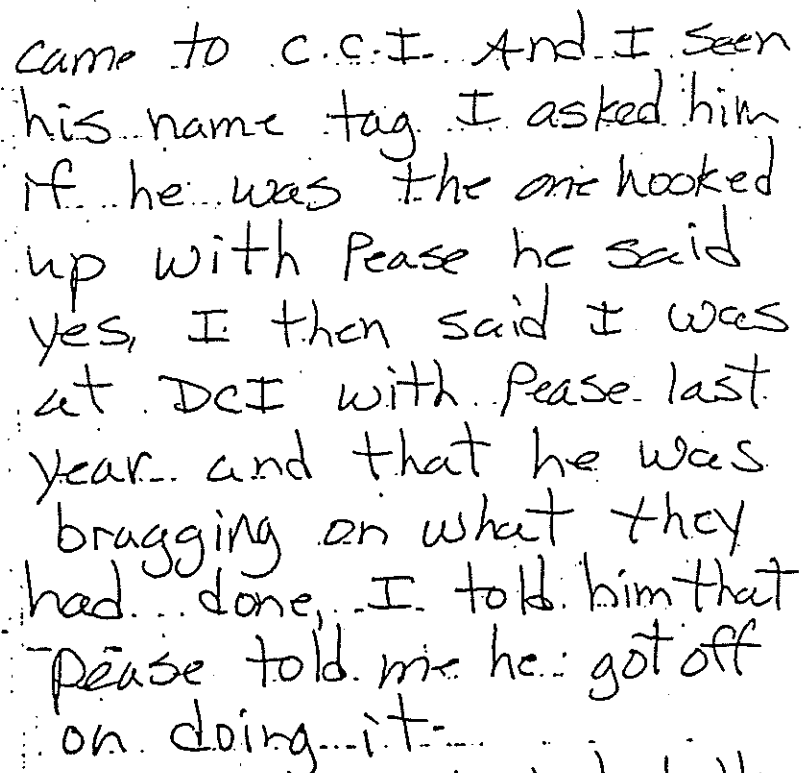 came to C.C.I. And I seen
his name tag I asked him
if he was the one hooked
up with Pease he said
yes, I then said I was
at DCI with Pease last
year and that he was
bragging on what they
had done, I told him that
Pease told me he got off
on doing it